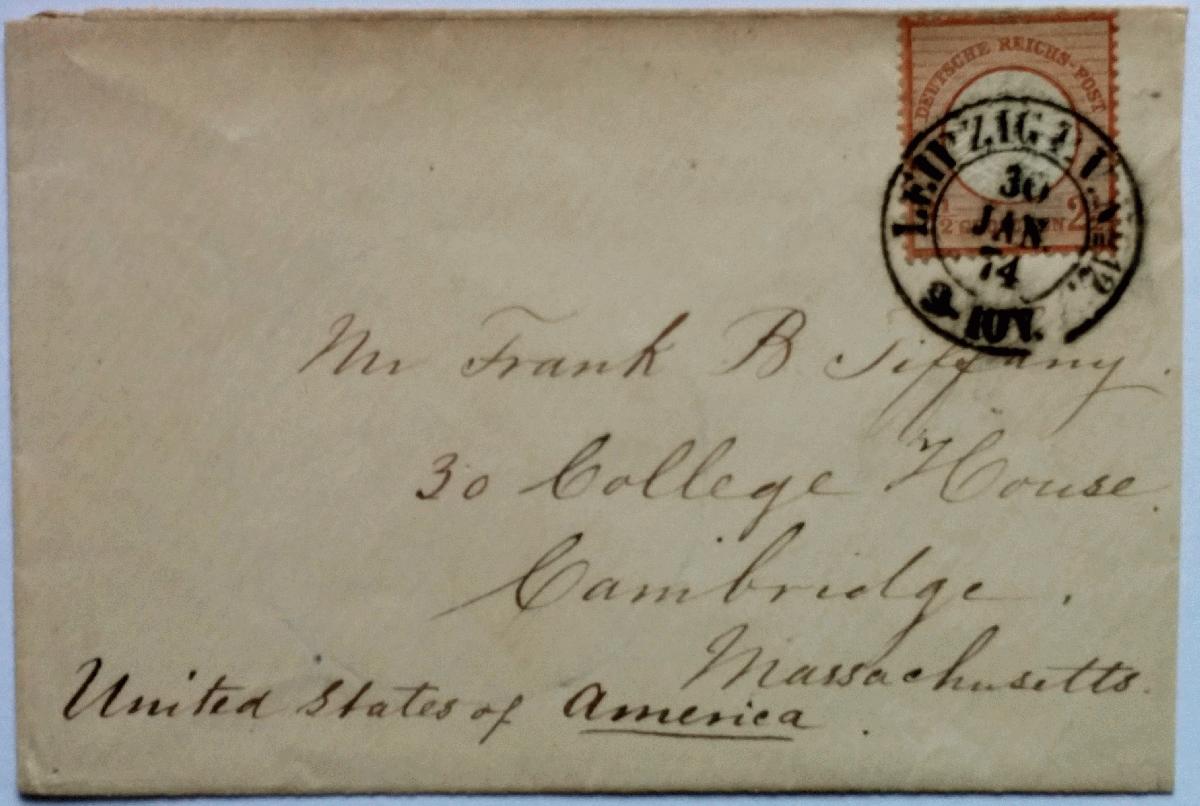 DEUTSCHE REICHS-POST
LEIPZIG
30
JAN
74
9-10V.
Mr Frank B Tiffany.
30 College House.
Cambridge.
Massachusetts.
United States of America.